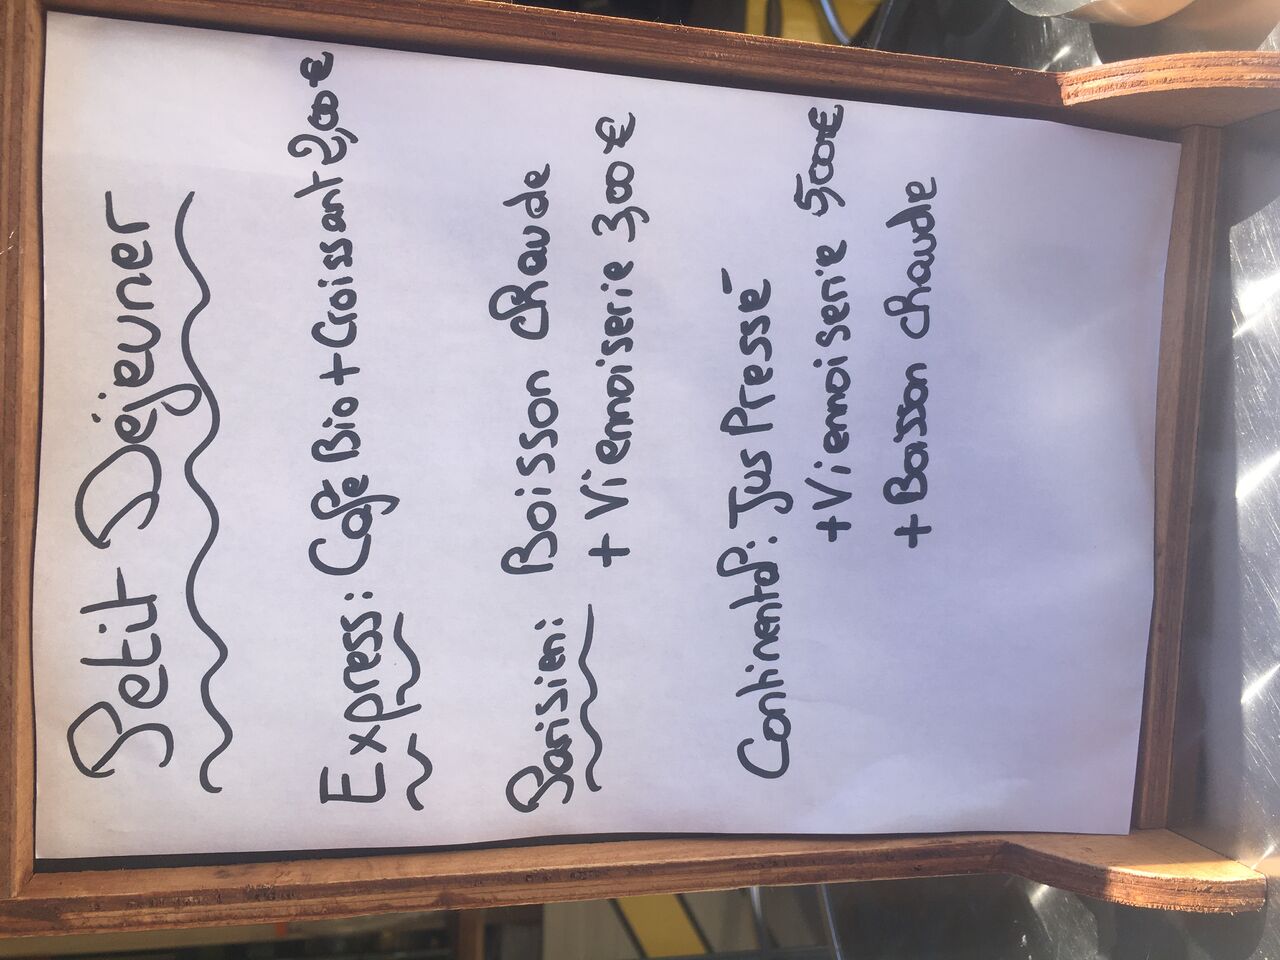 Petit Déjeuner
Express: Café Bio + Croissant 2,00€
Parisien: Boisson chaude
+ Viennoiserie 3,00€
Continental: Jus Pressé
+ Viennoiserie 5,00€
+ Boisson chaude